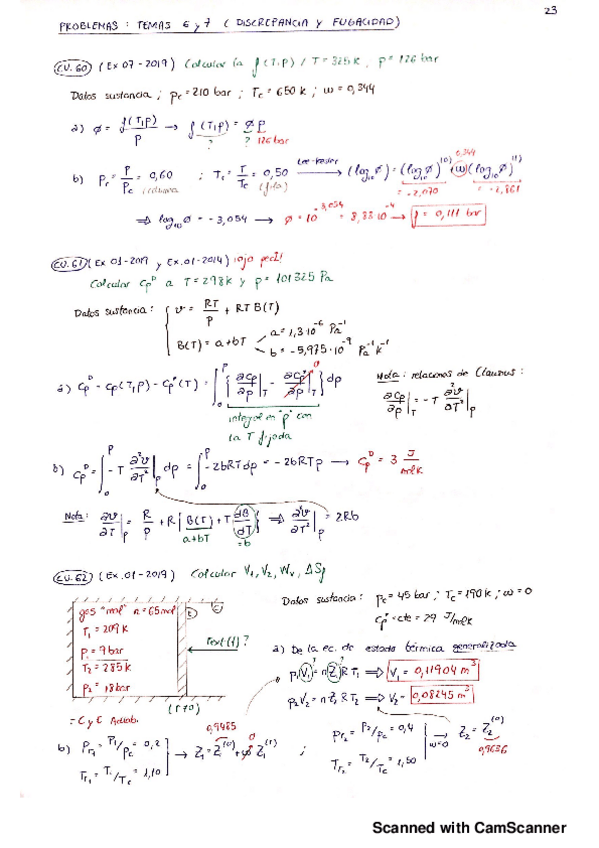 23
PROBLEMAS: TEMAS 6 y 7 (DISCREPANCIA y FUGACIDAD)
CU.60 (Ex 07-2019) Calcular la f(T,p) / T = 325 K, p = 126 bar
Datos sustancia; pc = 210 bar; Tc = 650 K; ω = 0,344
a) φ = f(T,p)/p → f(T,p) = φ p
? ? 126 bar
b) Pr = P/Pc = 0,60 ; Tr = T/Tc = 0,50 Lee-Kesler → (log₁₀φ) = (log₁₀φ)⁽⁰⁾ + ω (log₁₀φ)⁽¹⁾
columna (fila) 0,344 = -2,070 = -2,861
⇒ log₁₀φ = -3,054 → φ = 10^-3,054 = 8,83·10⁻⁴ → f = 0,111 bar
CU.61 (Ex 01-2019 y Ex.01-2014) ¡ojo pecl!
Calcular Cp^D a T = 298 K y p = 101325 Pa
Datos sustancia: { v = RT/p + RT B(T)
B(T) = a + bT a = 1,3·10⁻⁶ Pa⁻¹
b = -5,975·10⁻⁹ Pa⁻¹K⁻¹
a) Cp^D = Cp(T,p) - Cp*(T) = ∫₀^P { ∂Cp/∂p|T - ∂Cp*/∂p|T } dp
0
Nota: relaciones de Clausius:
∂Cp/∂p|T = -T ∂²v/∂T²|p
integral en "p" con
la T fijada
b) Cp^D = ∫₀^P -T ∂²v/∂T²|p dp = ∫₀^P -2bRT dp = -2bRTp → Cp^D = 3 J/mol K
Nota: ∂v/∂T|p = R/p + R { B(T) + T dB/dT } ⇒ ∂²v/∂T²|p = 2Rb
a+bT =b
CU.62 (Ex.01-2019) Calcular V₁, V₂, W, ΔSf
gas "mol" n = 65 mol
T₁ = 209 K
P₁ = 9 bar
T₂ = 285 K
p₂ = 18 bar
Text(t)?
(t>0)
= C y E Adiab.
Datos sustancia: pc = 45 bar; Tc = 190 K; ω = 0
Cp* = cte = 29 J/mol K
a) De la ec. de estado térmica generalizada
p₁V₁ = n Z₁ R T₁ ⇒ V₁ = 0,11904 m³
p₂V₂ = n Z₂ R T₂ ⇒ V₂ = 0,08245 m³
b) Pr₁ = P₁/Pc = 0,2
Tr₁ = T₁/Tc = 1,10
→ Z₁ = Z₁⁽⁰⁾ + ω Z₁⁽¹⁾ ;
0,9485 0
Pr₂ = P₂/Pc = 0,4
Tr₂ = T₂/Tc = 1,50
ω=0 → Z₂ = Z₂⁽⁰⁾
0,9636
Scanned with CamScanner